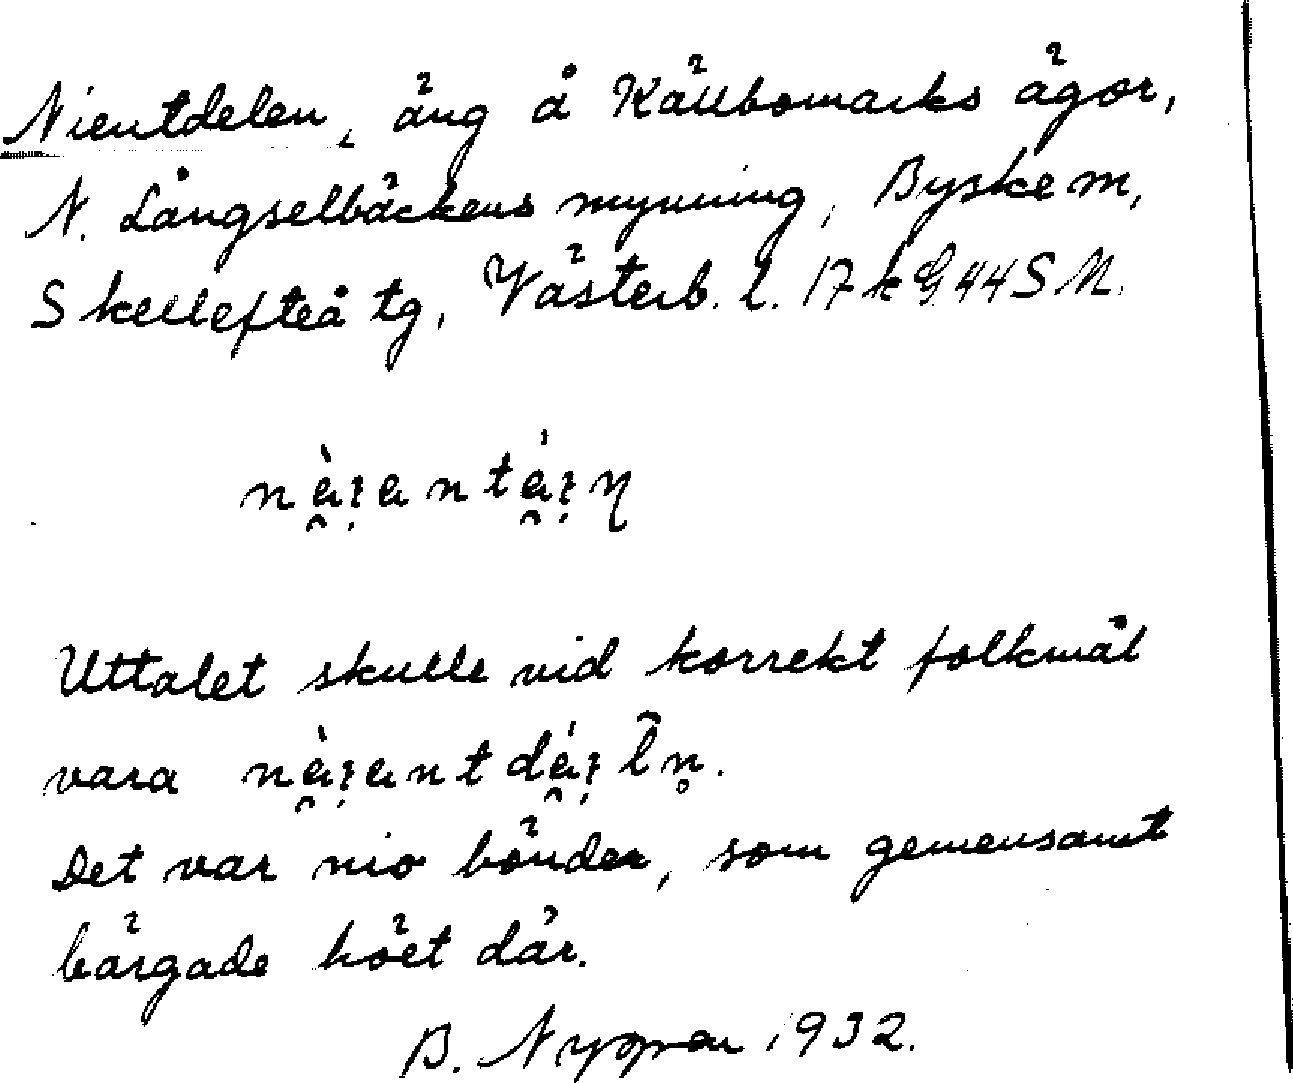 Nientdelen, äng å Källbomarks ägor,
N. Långselbäckens mynning, Byske sn,
Skellefteå tg, Västerb. l. 17 k G 44 SM.
Uttalet skulle vid korrekt folkmål
vara
Det var nio bönder, som gemensamt
bärgade höet där.
B. Nygren 1932.